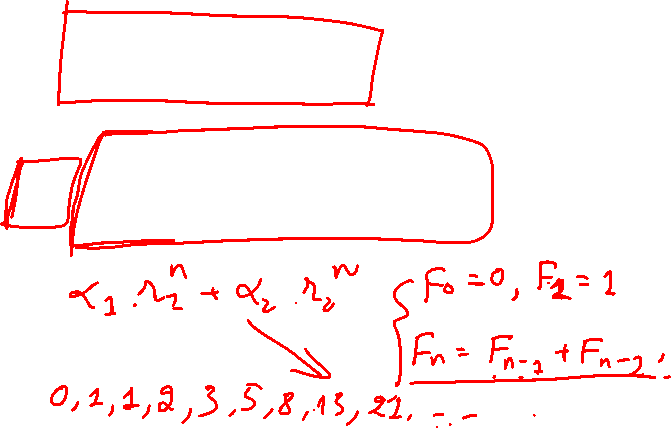 α₁ . r₁ⁿ + α₂ . r₂ⁿ
F₀ = 0, F₁ = 1
Fₙ = Fₙ₋₁ + Fₙ₋₂
0, 1, 1, 2, 3, 5, 8, 13, 21, ...